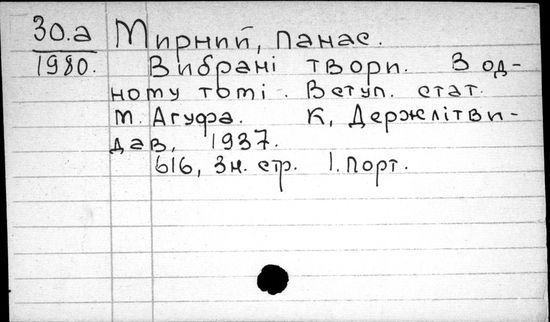 30.а Мирний, Панас.
1980. Вибрані твори. В од-
ному томі. Вступ. стат.
М. Агуфа. К, Держлітви-
дав, 1937.
616, 3 н. стр. 1. порт.